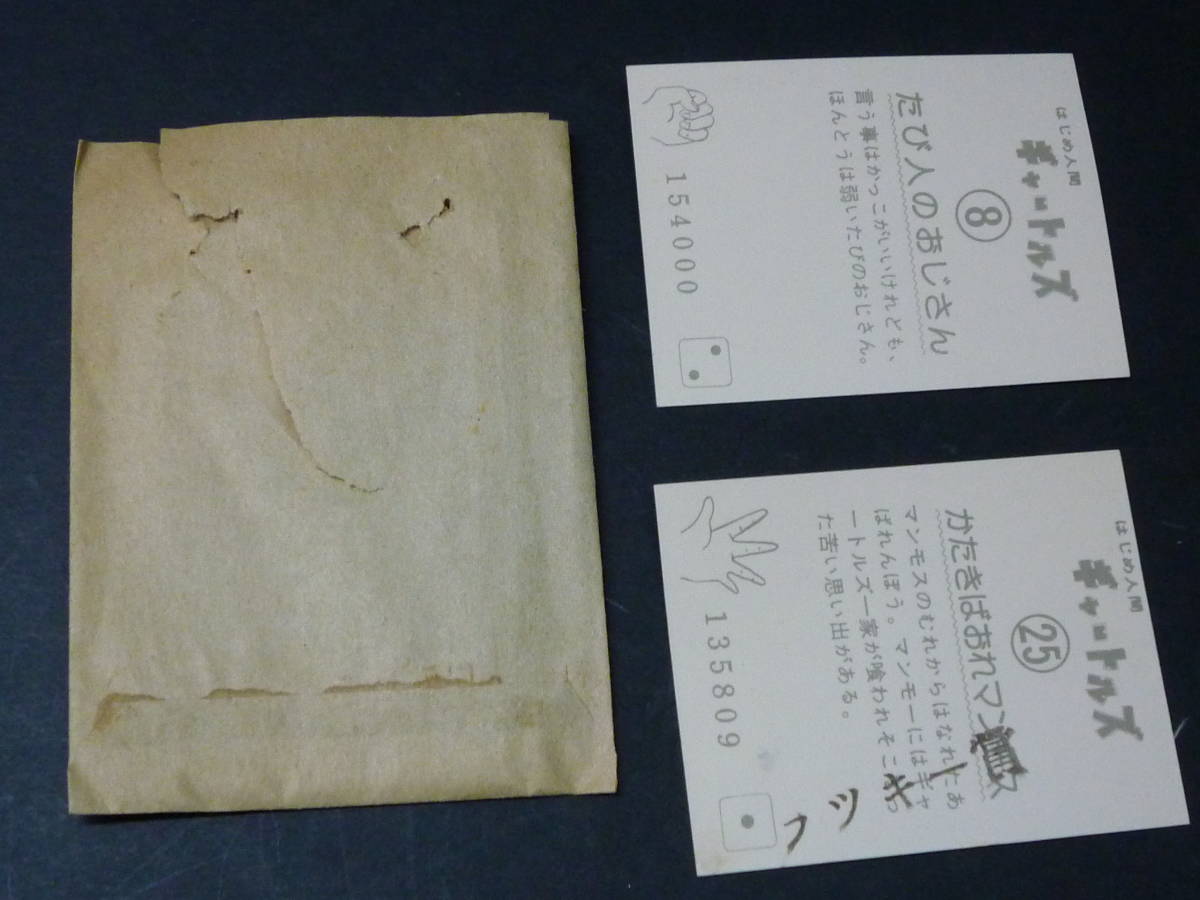 はじめ人間
ギャートルズ
8
たび人のおじさん
言う事はかっこがいいけれども、
ほんとうは弱いたびのおじさん。
154000
はじめ人間
ギャートルズ
25
かたきばおれマン
マンモスのむれからはなれたあ
ばれんぼう。マンモーにはギャ
ートルズ一家が喰われそこなっ
た苦い思い出がある。
135809